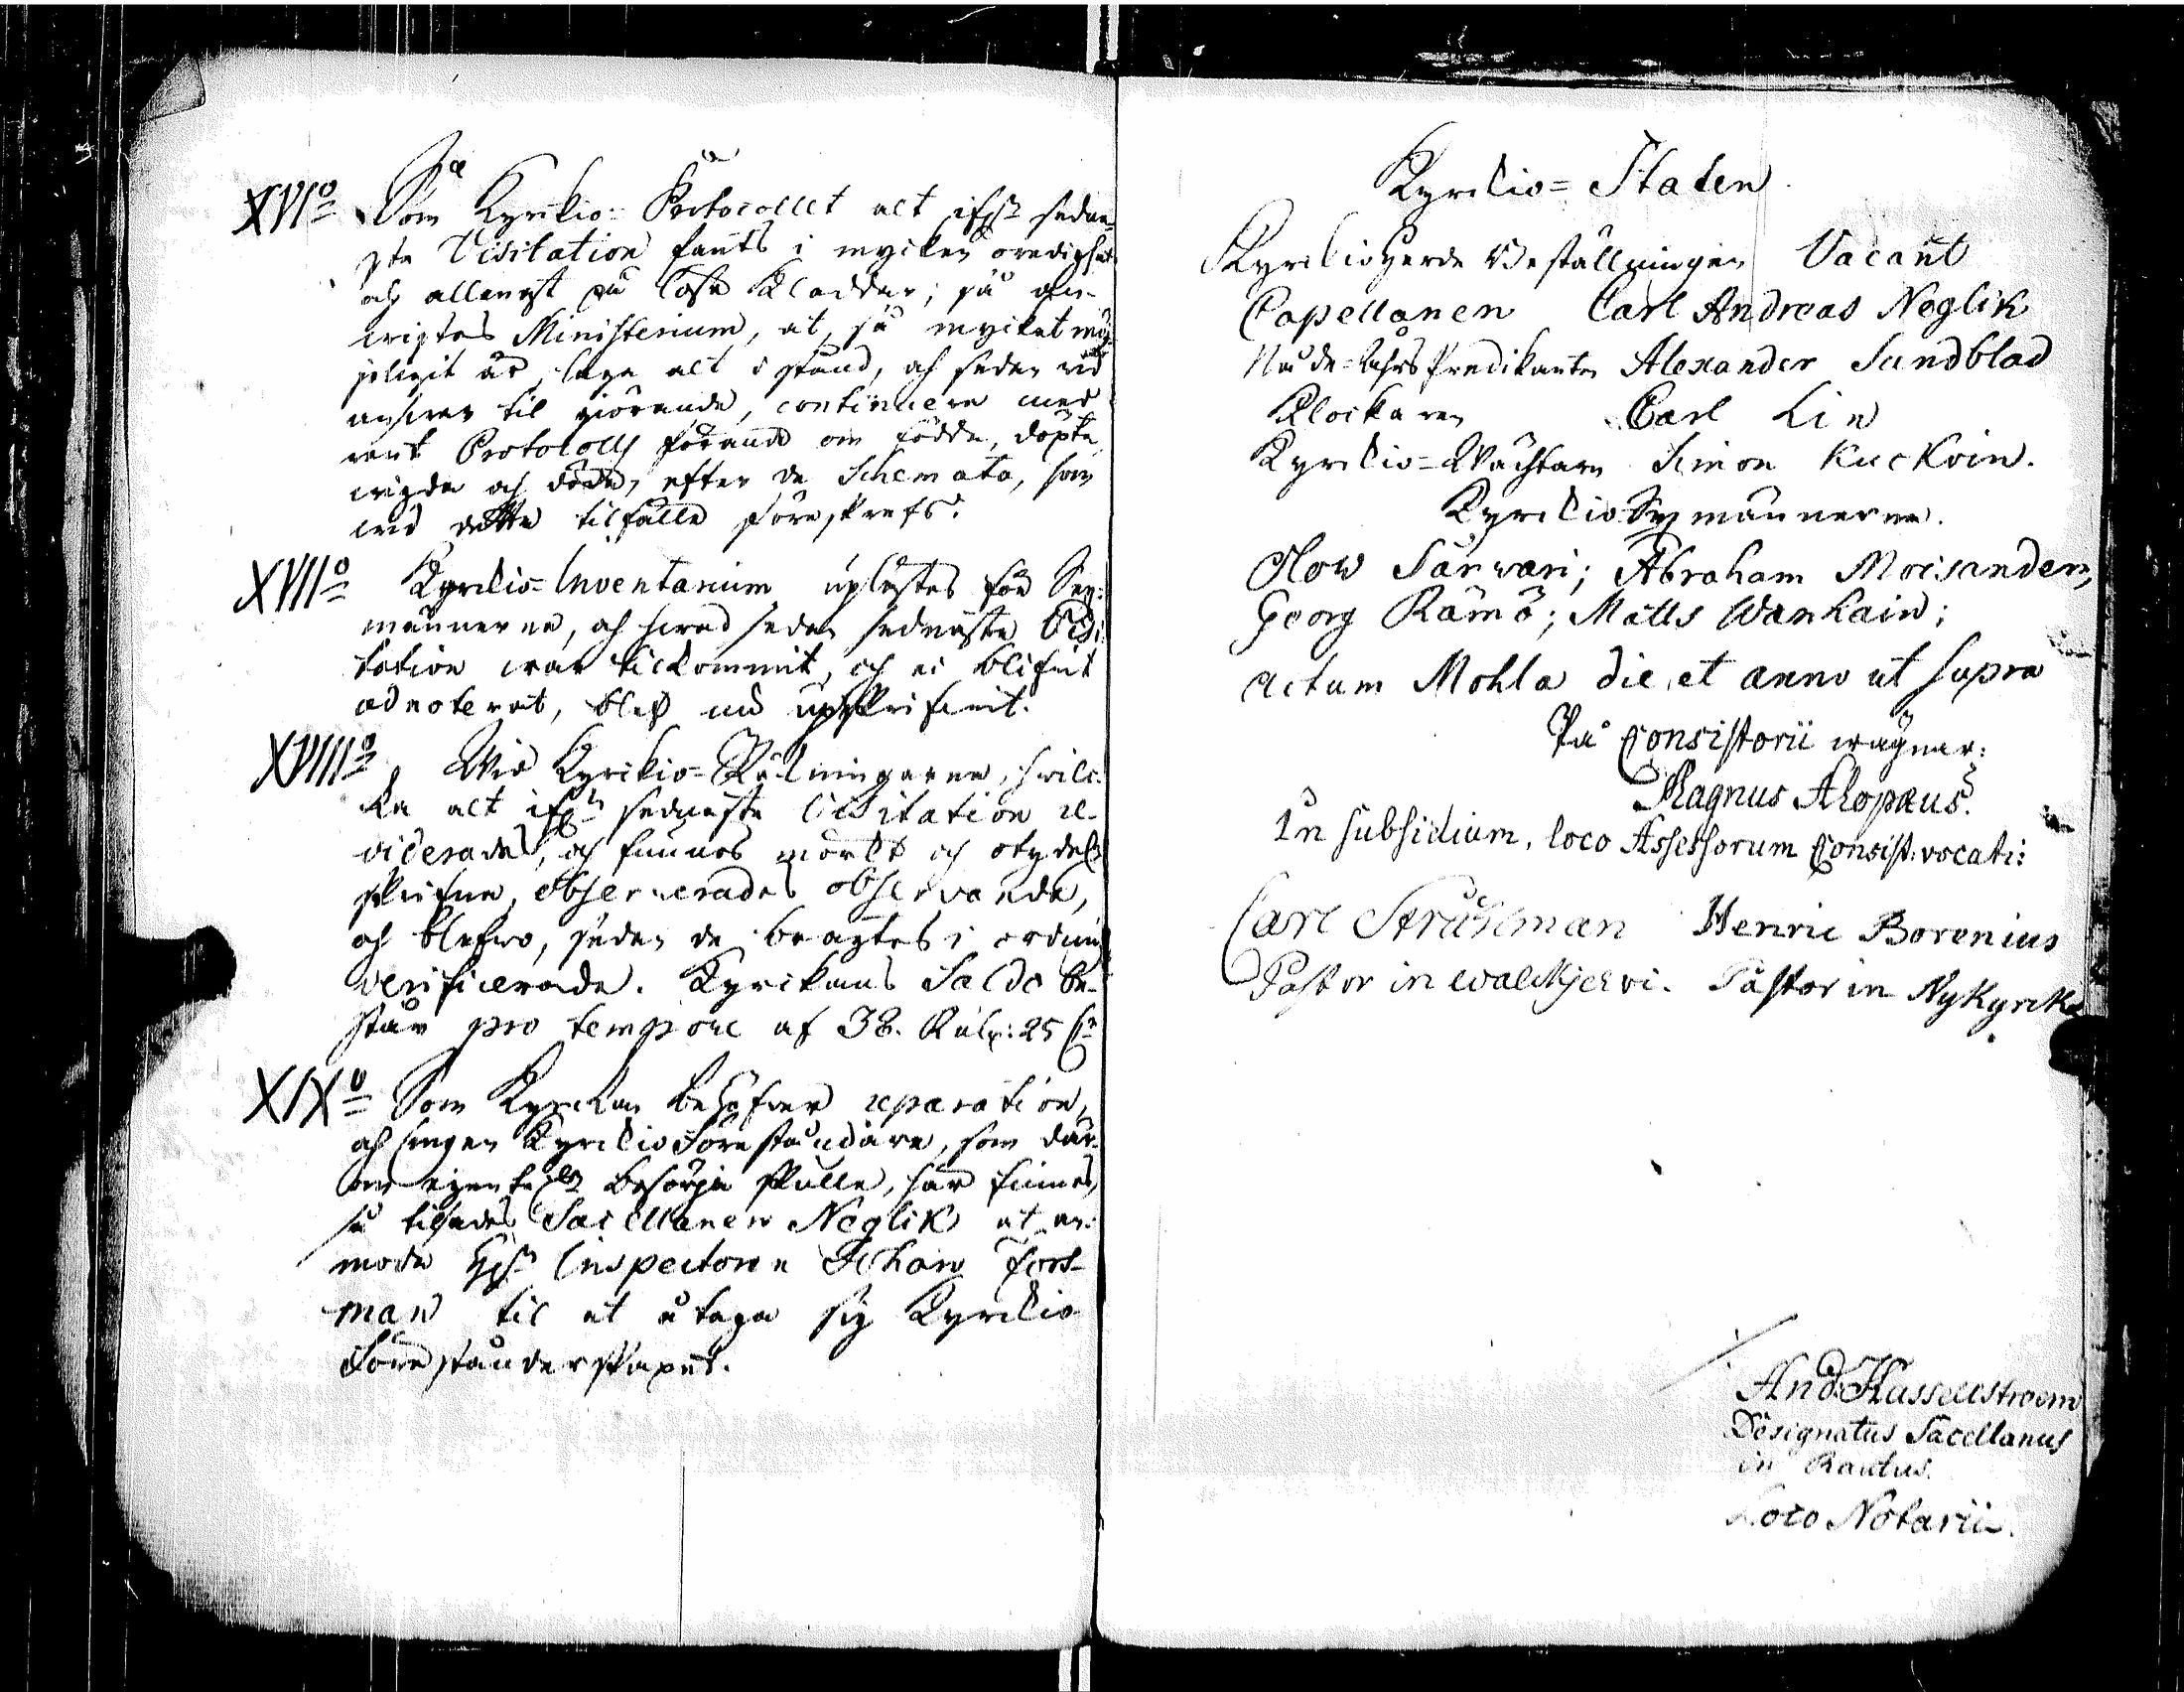 XVIo Som Kyrkio-Protocollet alt ifrån sedna-
ste Visitation fants i mycken oredighet
och allenast på lösa kladdar; så an-
wistes Ministerium, at, så mycket möj-
jeligit är, laga alt i stånd, och sedan wid
answar til giörande, continuera med
rent Protocolls förande om födde, döpte,
wigde och döde, efter de Schemata, som
wid detta tilfälle föreskrefs.
XVIIo Kyrkio-Inventarium uplästes för Sex-
männerne, och hwad sedan sednaste Visi-
tation war tilkommit, och ei blifwit
adnoterat, blef nu upskrifwit.
XVIIIo Wid Kyrkio-Räkningarne, hwil-
ka alt ifrån sednaste Visitation re-
viderades, och funnos mörkt och otydel:
skrifne, observerades observanda,
och blefwo, sedan de bragtes i ordning
verificerade. Kyrkans Saldo be-
står pro tempore af 38. Rubl: 25 C:
XIXo Som Kyrckan behöfwer reparation,
och ingen Kyrckio Föreståndare, som där-
om egenteln besörja skulle, här finnes,
så tilsades Sacellanen Neglik at an-
moda Hr Inspectoren Johan Fors-
man til at åtaga sig Kyrckio
Föreståndarskapet.
Kyrckio-Staten.
Kyrckioherde Beställningen Vacant
Capellanen Carl Andreas Neglik
Nåde-Åhrs Predikanten Alexander Sundblad
Klockaren Carl Lin
Kyrckio-Wächtaren Simon Kuckoin.
Kyrckio Sexmännerne.
Olow Särwari; Abraham Moisander,
Georg Rämö; Matts Wankain;
Actum Mohla die et anno ut supra
På Consistorii wägnar:
Magnus Alopæus.
In subsidium, loco Assessorum Consist: vocati:
Carl Stråhlman Henric Borenius
Pastor in Walkjervi. Pastor in NyKyrka
And: Hassellstroem
Designatus Sacellanus
in Rautus.
Loco Notarii.